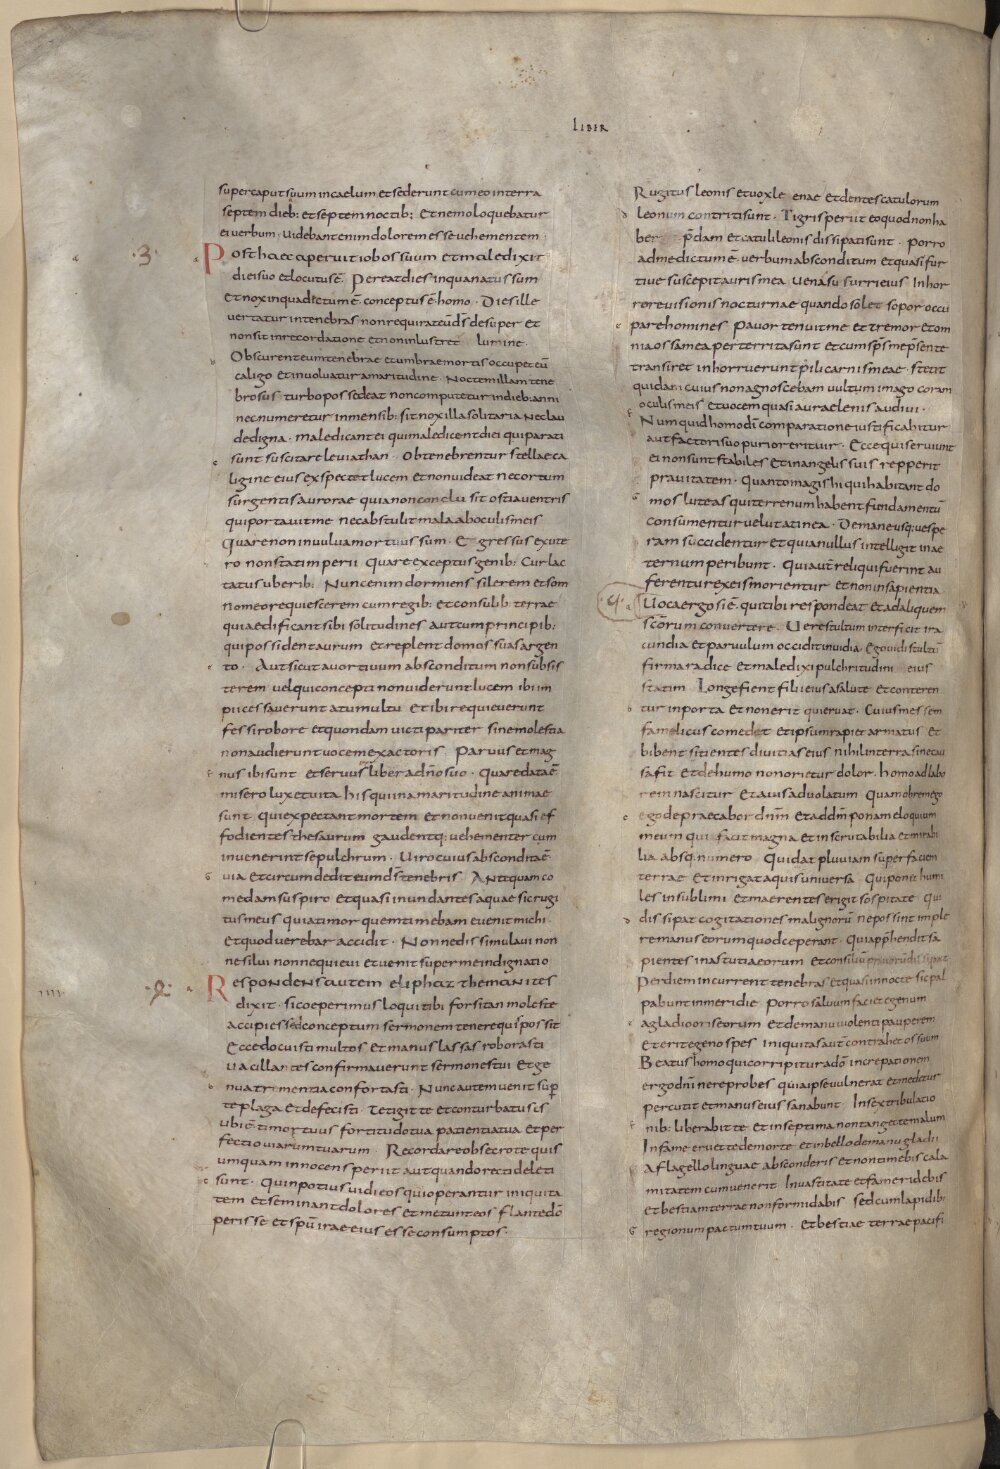 LIBER
super caput suum in caelum et sederunt cum eo in terra
septem dieb: et septem noctib: Et nemo loquebatur
ei verbum. videbant enim dolorem esse vehementem
·3·
Post haec aperuit iob os suum et maledixit
diei suo et locutus ē. Pereat dies in qua natus sum
Et nox in qua dictum ē. conceptus ē homo. Dies ille
vertatur in tenebras non requirat eum d̄s desuper et
non sit in recordatione et non inlustret lumine.
Obscurent eum tenebrae et umbrae mortis occupet eū
caligo et involvatur amaritudine. Noctem illam tene
brosus turbo possedeat non computetur in dieb: anni
nec numeretur in mensib: sit nox illa solitaria nec lau
de digna. maledicant ei qui maledicent diei qui parati
sunt suscitare leviathan. Obtenebrentur stellae ca
ligine eius exspectet lucem et non videat nec ortum
surgentis aurorae quia non conclusit ostia ventris
qui portavit me nec abstulit mala ab oculis meis
Quare non in vulva mortuus sum. Egressus ex ute
ro non statim perii Quare exceptus genib: Cur lac
tatus uberib: Nunc enim dormiens silerem et som
no meo requiescerem cum regib: et consulib: terrae
qui aedificant sibi solitudines aut cum principib:
qui possident aurum et replent domos suas argen
to. Aut sicut avortivum absconditum non subsis
terem vel qui concepti non viderunt lucem ibi im
pii cessaverunt a tumultu Et ibi requieverunt
fessi robore et quondam victi pariter sine molestia
non audierunt vocem exactoris Parvus et mag
nus ibi sunt et servus liber a dn̄o suo. Quare data ē
misero lux et vita his qui in amaritudine animae
sunt qui expectant mortem et non venit quasi ef
fodientes thesaurum gaudentq: vehementer cum
invenerint sepulchrum. Viro cuius abscondita ē
via et circumdedit eum d̄s tenebris Antequam co
medam suspiro et quasi inundantes aquae sic rugi
tus meus quia timor quem timebam evenit michi.
Et quod verebar accidit. Nonne dissimulavi non
ne silui nonne quievi et venit super me indignatio
·2·
IIII
Respondens autem eliphaz themanites
dixit. si coeperimus loqui tibi forsitan moleste
accipies sed conceptum sermonem tenere quis possit
Ecce docuisti multos et manus lassas roborasti
vacillantes confirmaverunt sermones tui et ge
nua trementia confortasti. Nunc autem venit sup̄
te plaga et defecisti Tetigit te et conturbatus es
ubi ē timor tuus fortitudo tua patientia tua et per
fectio viarum tuarum Recordare obsecro te quis
umquam innocens periit aut quando recti deleti
sunt. Quin potius vidi eos qui operantur iniquita
tem et seminant dolores et metunt eos flante d̄o
perisse et spū irae eius esse consumptos.
Rugitus leonis et vox leenae et dentes catulorum
leonum contriti sunt. Tigris periit eo quod non ha
ber p̄dam et catuli leonis dissipati sunt. Porro
ad me dictum ē. verbum absconditum et quasi fur
tive suscepit auris mea venas susurri eius In hor
rore visionis nocturnae quando solet sopor occu
pare homines Pavor tenuit me et tremor et om
nia ossa mea perterrita sunt et cum sp̄s me p̄sente
transiret inhorruerunt pili carnis meae. stetit
quidam cuius non agnoscebam vultum imago coram
oculis meis et vocem quasi aurae lenis audivi.
Numquid homo dī comparatione iustificabitur
aut factori suo purior erit vir. Ecce qui serviunt
ei non sunt stabiles et in angelis suis repperit
pravitatem. Quanto magis hi qui habitant do
mos luteas qui terrenum habent fundamentū
consumentur velut a tinea. De mane usq: vespe
ram succidentur et quia nullus intelligit in ae
ternum peribunt. Qui aut̄ reliqui fuerint au
ferentur ex eis morientur et non in sapientia
·4·
Voca ergo si ē. qui tibi respondeat et ad aliquem
scōrum convertere. Vere stultum interficit ira
cundia et parvulum occidit invidia. Ego vidi stultū
firma radice et maledixi pulchritudini eius
statim Longe fient filii eius a salute et conteren
tur in porta et non erit qui eruat. Cuius messem
famelicus comedet et ipsum rapiet armatus et
bibent sitientes divitias eius Nihil in terra sine cau
sa fit et de humo non orietur dolor. homo ad labo
rem nascitur et avis ad volatum Quam obrem ego
ego depraecabor dn̄m et ad dm̄ ponam eloquium
meum qui facit magna et inscrutabilia et mirabi
lia absq: numero Qui dat pluviam super faciem
terrae et inrigat aquis universa Qui ponit humi
les in sublimi et maerentes erigit sospitate Qui
dissipat cogitationes malignorū ne possint imple
re manus eorum quod ceperant. Qui app̄hendit sa
pientes in astutia eorum et consiliū pravorū dissipat
Per diem incurrent tenebras et quasi in nocte sic pal
pabunt in meridie Porro salvum faciet egenum
a gladio oris eorum et de manu violenti pauperem
Et erit egeno spes iniquitas aut̄ contrahet os suum
Beatus homo qui corripitur a dō increpationem
ergo dn̄i ne reprobes quia ipse vulnerat et medetur
percutit et manus eius sanabunt In sex tribulatio
nib: liberabit te et in septima non tanget te malum
In fame eruet te de morte et in bello de manu gladii
A flagello linguae absconderis et non timebis cala
mitatem cum venerit In vastitate et fame ridebis
et bestiam terrae non formidabis sed cum lapidib:
regionum pactum tuum. Et bestiae terrae pacifi